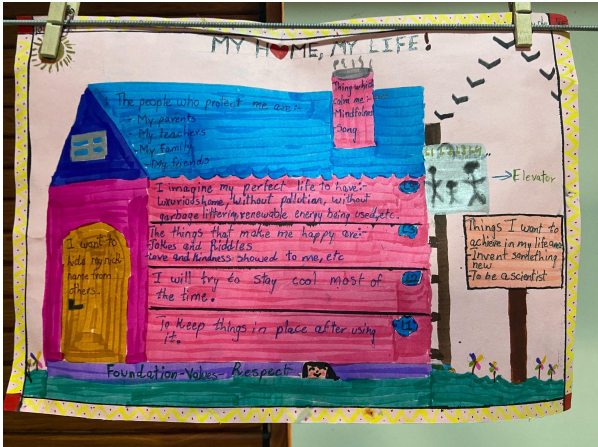 MY HOME, MY LIFE!
The people who protect me are:-
- My parents
- My teachers
- My family
- My friends
Thing which
calm me:-
Mindfulness
Song
Elevator
I imagine my perfect life to have:-
luxurioushome, Without pollution, without
garbage littering, renewable energy being used, etc.
L3
The things that make me happy are:-
Jokes and Riddles
Love and kindness showed to me, etc
I will try to stay cool most of
the time.
L1
To keep things in place after using
it.
I want to
hide my nick-
name from
others.
Things I want to
achieve in my life are:-
-Invent something
new
-To be a scientist
Foundation-Values-Respect